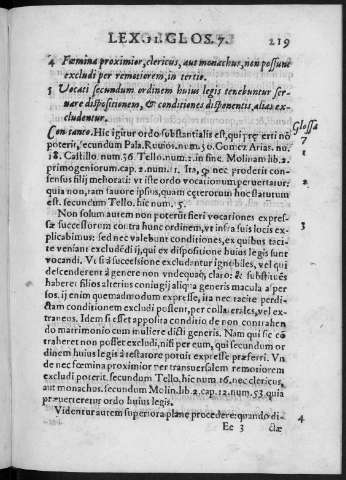 LEXORGLOS. 7. 219
4 Fœmina proximior, clericus, aut monachus, non possunt
excludi per remotiorem, in tertio.
5 Vocati secundum ordinem huius legis tenebuntur ser-
uare dispositionem, & conditiones disponentis, alias ex-
cludentur.
Con tanto. Hic igitur ordo substantialis est, qui præerti nõ
Glossa
7
poterit, secundum Pala. Ruuios. num. 30. Gomez Arias. nu.
1
18. Castillo. num. 36. Tello. num. 1. in fine. Molin. lib. 2.
primogeniorum cap. 2. num. 1. Ita, q; nec proderit con-
2
sensus filij melioratí: vt iste ordo vocationum peruertatur:
quia non, tam fauore ipsius, quam ceterorum hoc statutum
est. secundum Tello. hic num. 5.
Non solum autem non poterût fieri vocationes expres-
3
sæ successorum contra hunc ordinem, vt infra suis locis ex-
plicabimus: sed nec valebunt conditiones, ex quibus taci-
te veniant excludẽdi ij, qui ex dispositione huius legis sunt
vocandi. Vt si à successione excludantur ignobiles, vel qui
descenderent à genere non vndequaq; claro: & substitutẽs
haberet filios alterius coniugij aliqua generis macula asper
sos. ij enim quemadmodum expresse, ita nec tacite per di-
ctam conditionem excludi possent, per collaterales, vel ex-
traneos. Idem si esset apposita conditio de non contrahen
do matrimonio cum muliere dicti generis. Nam qui sic cõ
traheret non posset excludi, nisi per eum, qui secundum or
dinem huius legis à testatore potuit expresse præferri. Vn
de nec fœmina proximior per transuersalem remotiorem
excludi poterit. secundum Tello, hic num. 16. nec clericus,
aut monachus. secundum Molin. lib. 2. cap. 12. num. 53. quia
præuerteretur ordo huius legis.
Videntur autem superiora plane procedere: quando di-
4
Ee 3 ctæ